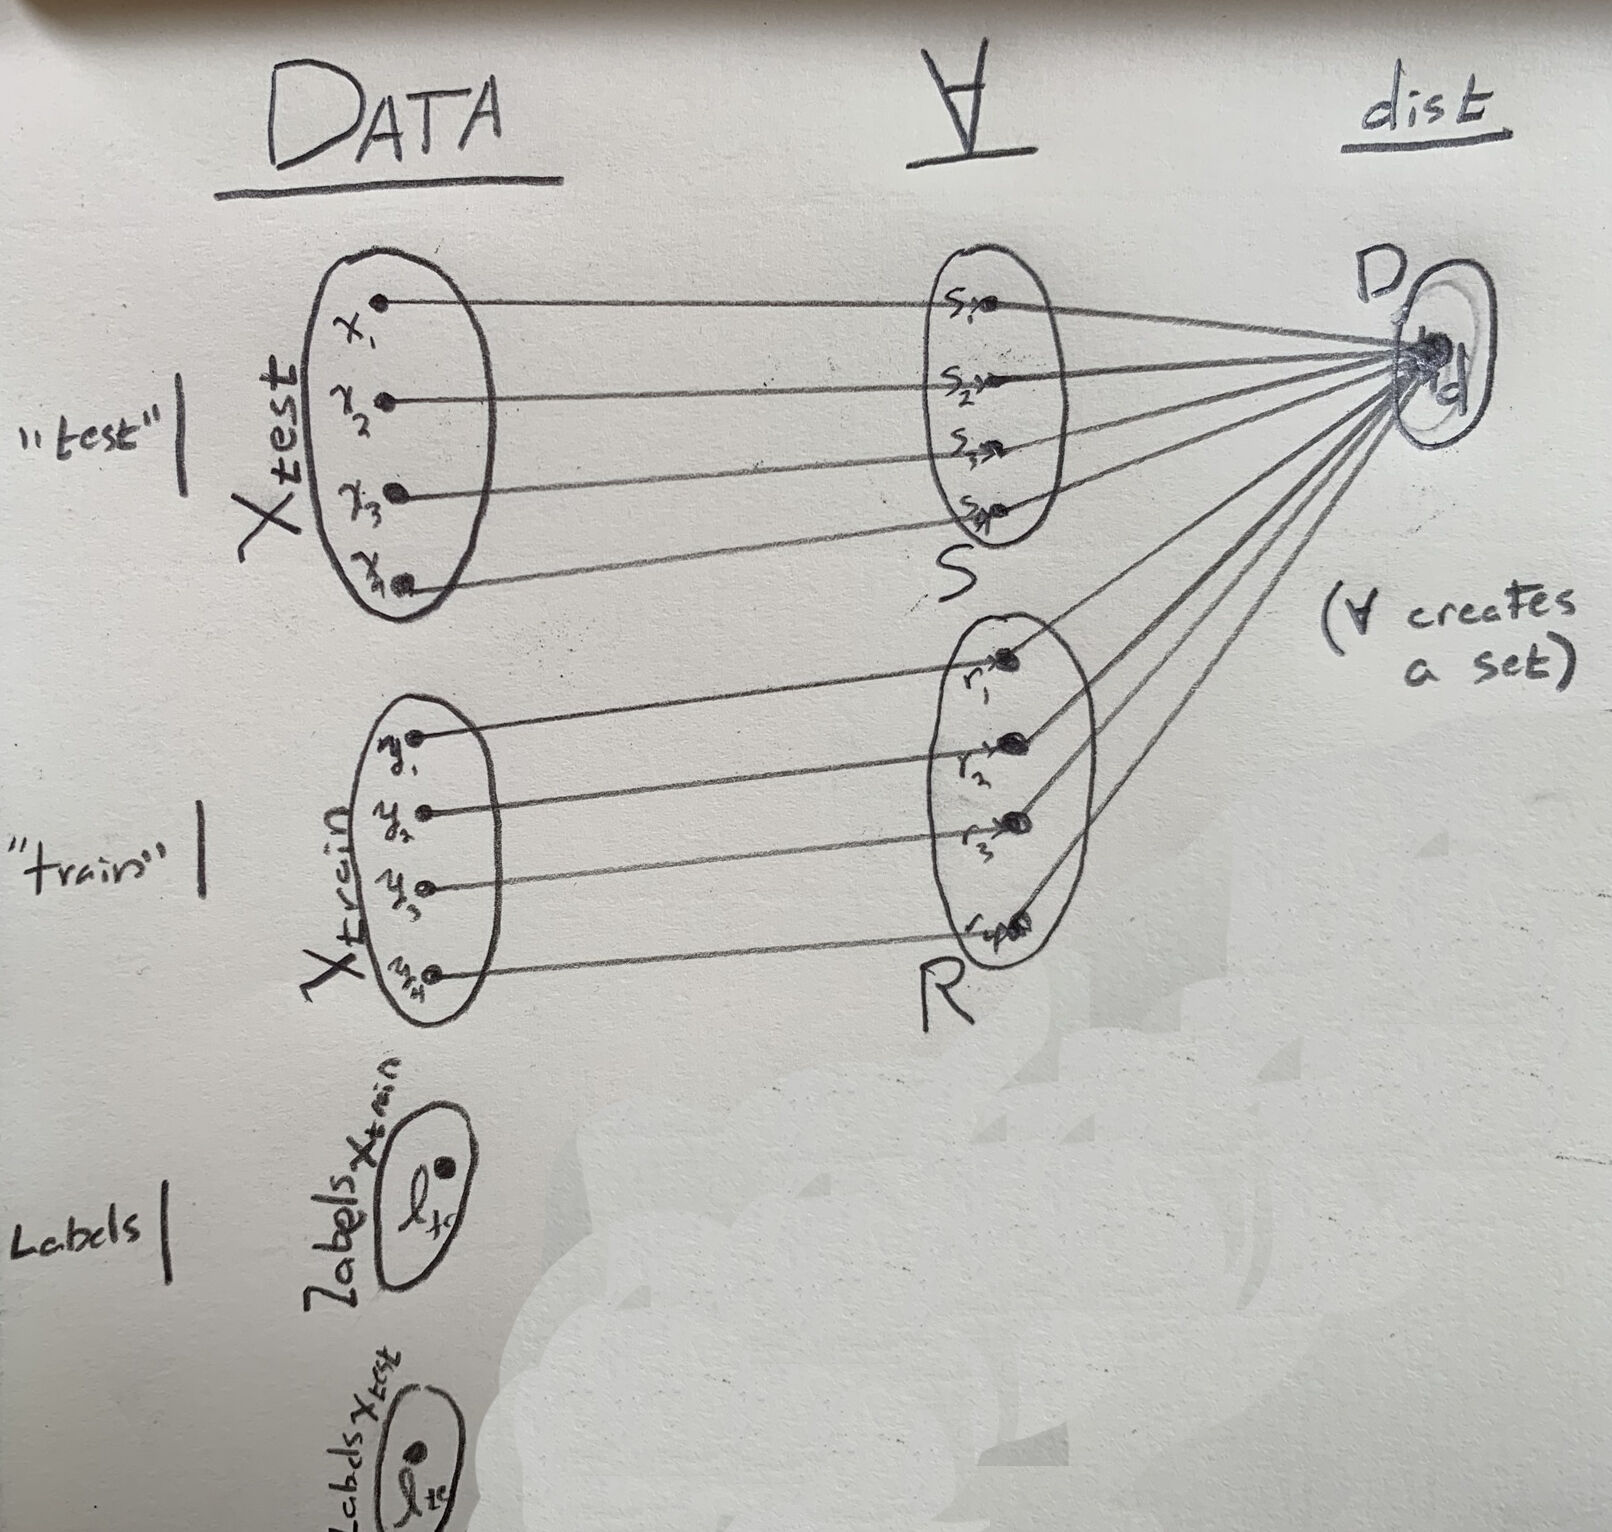 DATA
∀
dist
"test"
Xtest
x1
x2
x3
x4
s1
s2
s3
s4
S
D
d
(∀ creates
a set)
"train"
Xtrain
y1
y2
y3
y4
r1
r2
r3
r4
R
Labels
LabelsXtrain
LabelsXtest